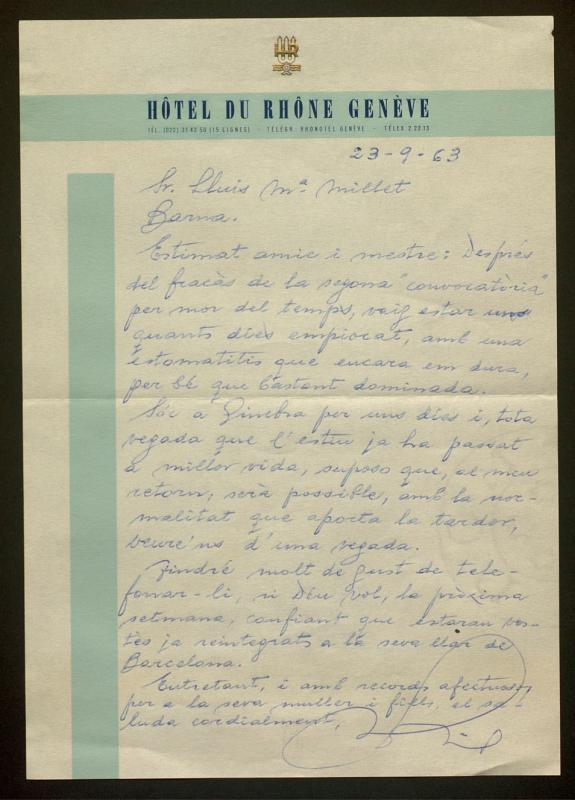 HÔTEL DU RHÔNE GENÈVE
TÉL. (022) 31 42 50 (15 LIGNES) - TÉLÉGR. RHONOTEL GENÈVE - TÉLEX 2 22 13
23-9-63
Sr. Lluis Mª Millet
Barna.
Estimat amic i mestre: Després
del fracàs de la segona "convocatòria"
per mor del temps, vaig estar uns
quants dies empiocat, amb una
estomatitis que encara em dura,
per bé que bastant dominada.
Sóc a Ginebra per uns dies i, tota
vegada que l'estiu ja ha passat
a millor vida, suposo que, al meu
retorn, serà possible, amb la nor-
malitat que aporta la tardor,
veure'ns d'una vegada.
Tindré molt de gust de tele-
fonar-li, si Déu vol, la pròxima
setmana, confiant que estaran vos-
tès ja reintegrats a la seva llar de
Barcelona.
Entretant, i amb records afectuosos
per a la seva muller i fills, el sa-
luda cordialment,